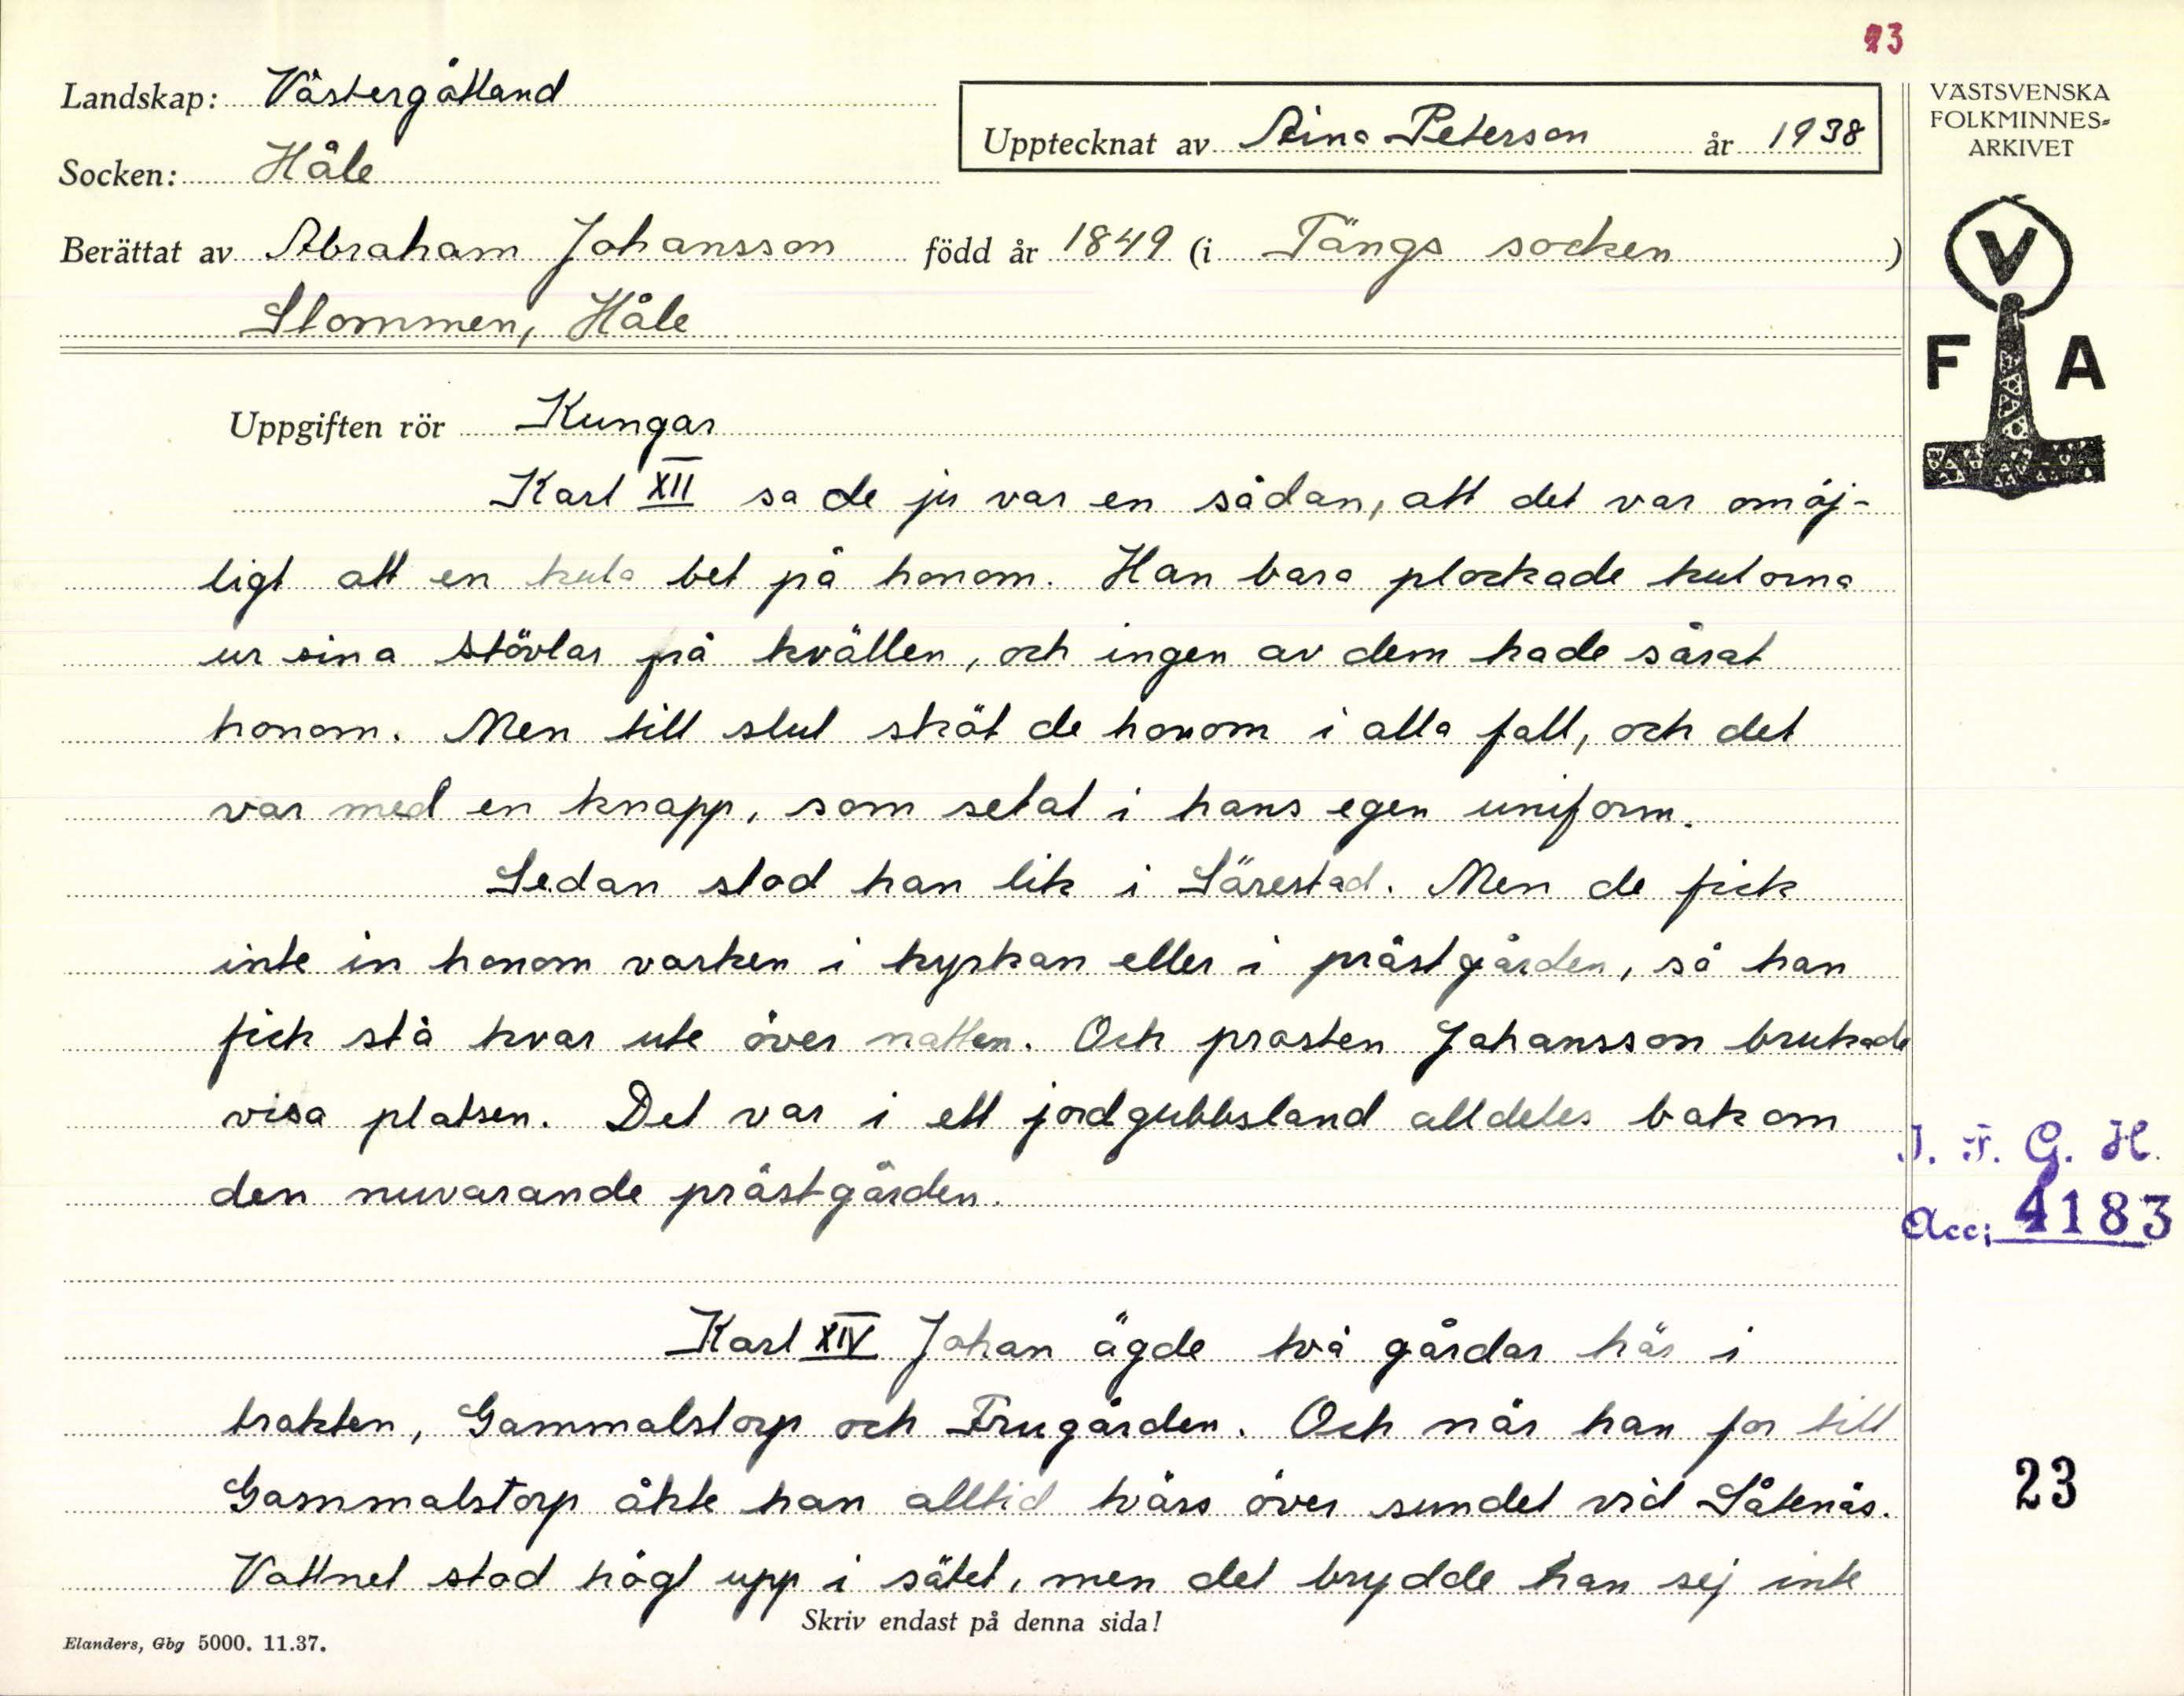 23
Landskap: Västergötland
Upptecknat av Aina Peterson år 1938
VÄSTSVENSKA
FOLKMINNES-
ARKIVET
Socken: Håle
Berättat av Abraham Johansson född år 1849 (i Tängs socken)
Stommen, Håle
V
F A
Uppgiften rör Kungar
Karl XII sa de ju var en sådan, att det var omöj-
ligt att en kula bet på honom. Han bara plockade kulorna
ur sina stövlar på kvällen, och ingen av dem hade sårat
honom. Men till slut sköt de honom i alla fall, och det
var med en knapp, som setat i hans egen uniform.
Sedan stod han lik i Särestad. Men de fick
inte in honom varken i kyrkan eller i prästgården, så han
fick stå kvar ute över natten. Och prosten Johansson brukade
visa platsen. Det var i ett jordgubbsland alldeles bakom
den nuvarande prästgården.
I. F. G. H.
Acc: 4183
Karl XIV Johan ägde två gårdar här i
trakten, Gammalstorp och Frugården. Och när han for till
Gammalstorp åkte han alltid tvärs över sundet vid Såtenäs.
23
Vattnet stod högt upp i sätet, men det brydde han sej inte
Skriv endast på denna sida!
Elanders, Gbg 5000. 11.37.